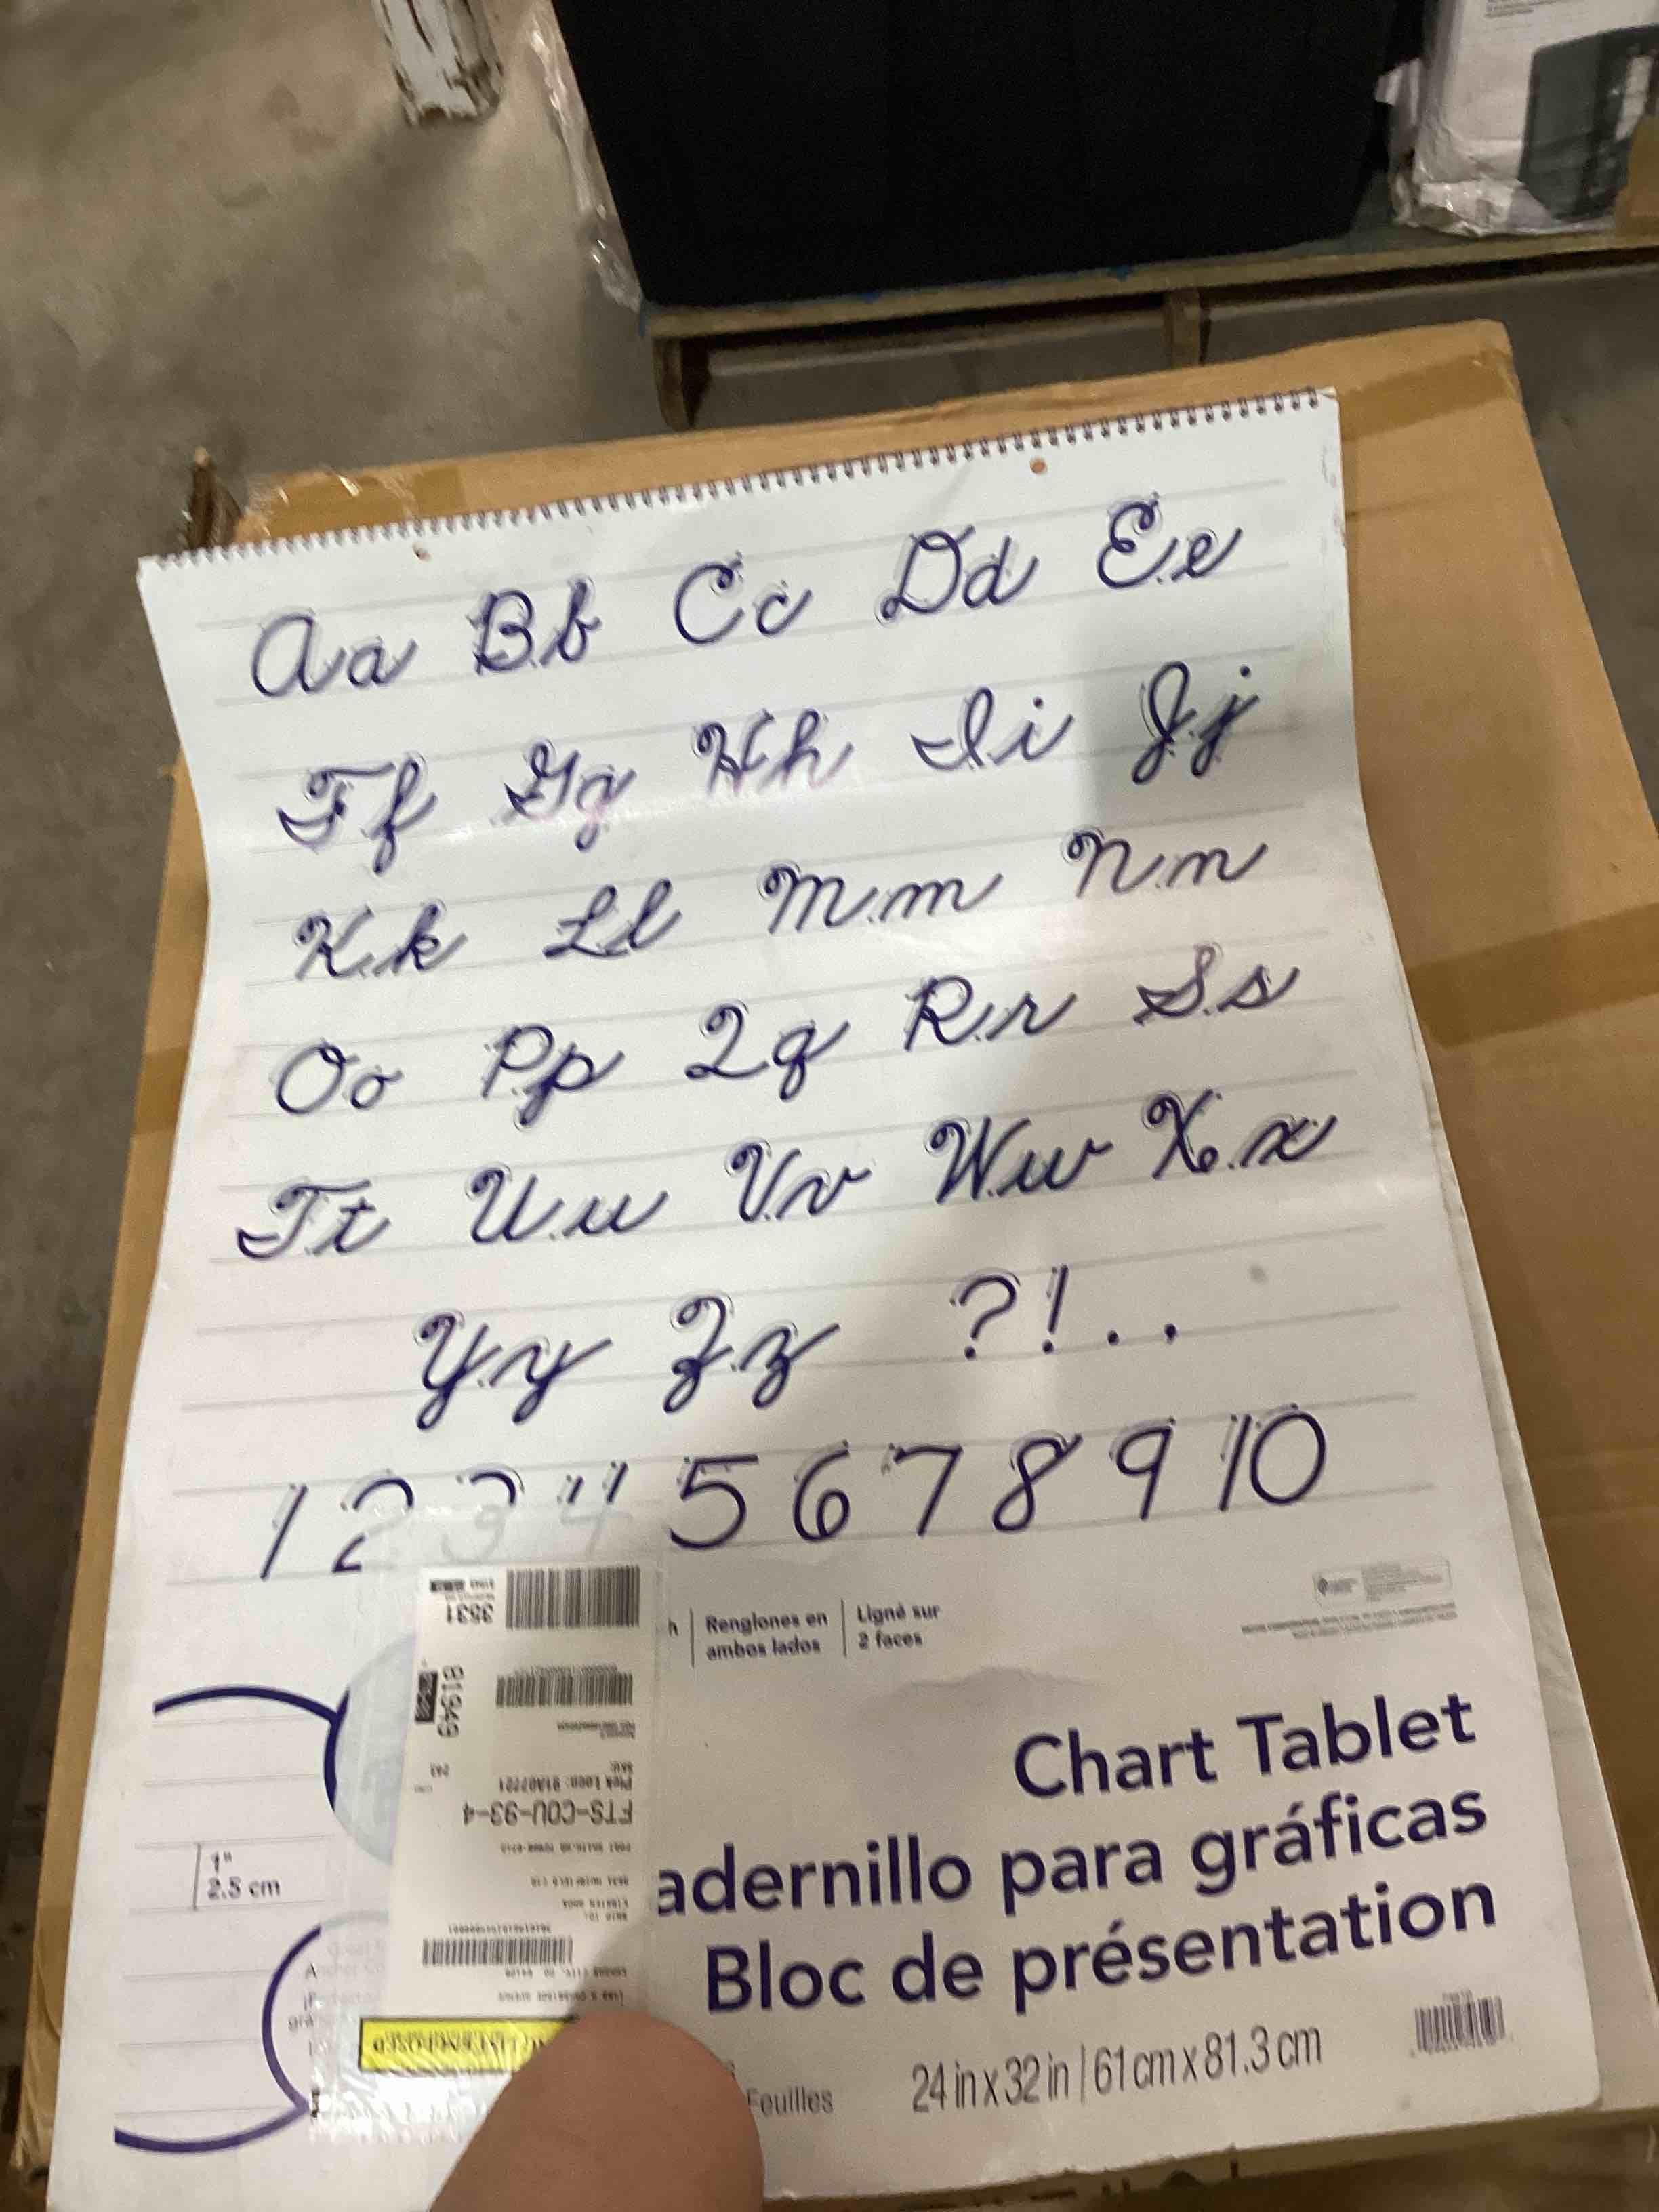 Aa Bb Cc Dd Ee
Ff Gg Hh Ii Jj
Kk Ll Mm Nn
Oo Pp Qq Rr Ss
Tt Uu Vv Ww Xx
Yy Zz ? ! . .
1 2 3 4 5 6 7 8 9 10
Renglones en
ambos lados
Ligné sur
2 faces
3531
81949
243
Pick Locn: 91A07721
FTS-COU-93-4
1"
2.5 cm
Chart Tablet
adernillo para gráficas
Bloc de présentation
Feuilles
24 in x 32 in | 61 cm x 81.3 cm